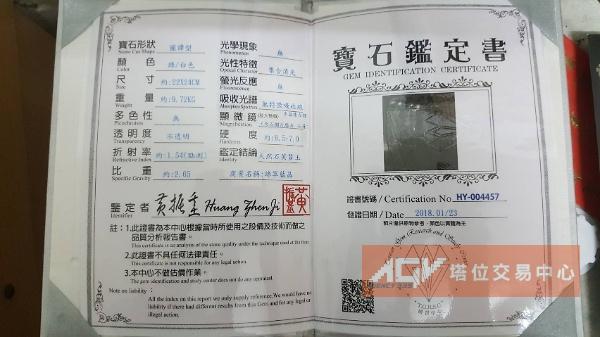 寶石形狀
Stone Cut Shape
顏色
Color
綠/白色
尺寸
Size
約:22X24CM
重量
Weight
約:9.72KG
多色性
無
透明度
Transparency
不透明
折射率
Refractive Index
約:1.54(點測)
比重
Specific Gravity
約:2.65
光學現象
Phenomena
無
光性特徵
Optical Character
集合消光
螢光反應
無
吸收光譜
顯微鏡
硬度
約:6.5-7.0
鑑定結論
Identity
天然石英質玉
鑒定者
Identifier
黃振重 Huang Zhen Ji
註：1.此證書為本中心根據當時所使用之設備及技術而做之
品質分析報告書。
This certificate is an analysis of the stone quality under the technique used at the time.
2.此證書不具任何法律責任。
This certificate is not responsible for any legal action.
3.本中心不做估價作業。
The gem identification and study center does not do any appraisal.
Note on liability :
All the index on this report we only supply reference. We would have no
liability if there had different results from this Gem and for any legal or
illegal action.
寶石鑑定書
GEM IDENTIFICATION CERTIFICATE
證書號碼 / Certification No. HY-004457
發證日期 / Date 2018.01/23
AGV 塔位交易中心